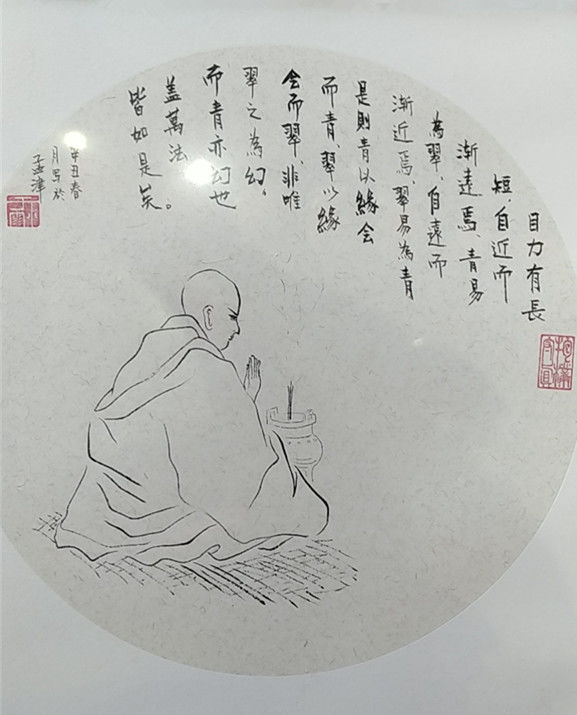 目力有長
短，自近而
漸遠焉，青易
為翠，自遠而
漸近焉，翠易為青
是則青以緣会
而青，翠以緣
会而翠，非唯
翠之為幻，
而青亦幻也
盖萬法
皆如是矣。
辛丑春
月写於